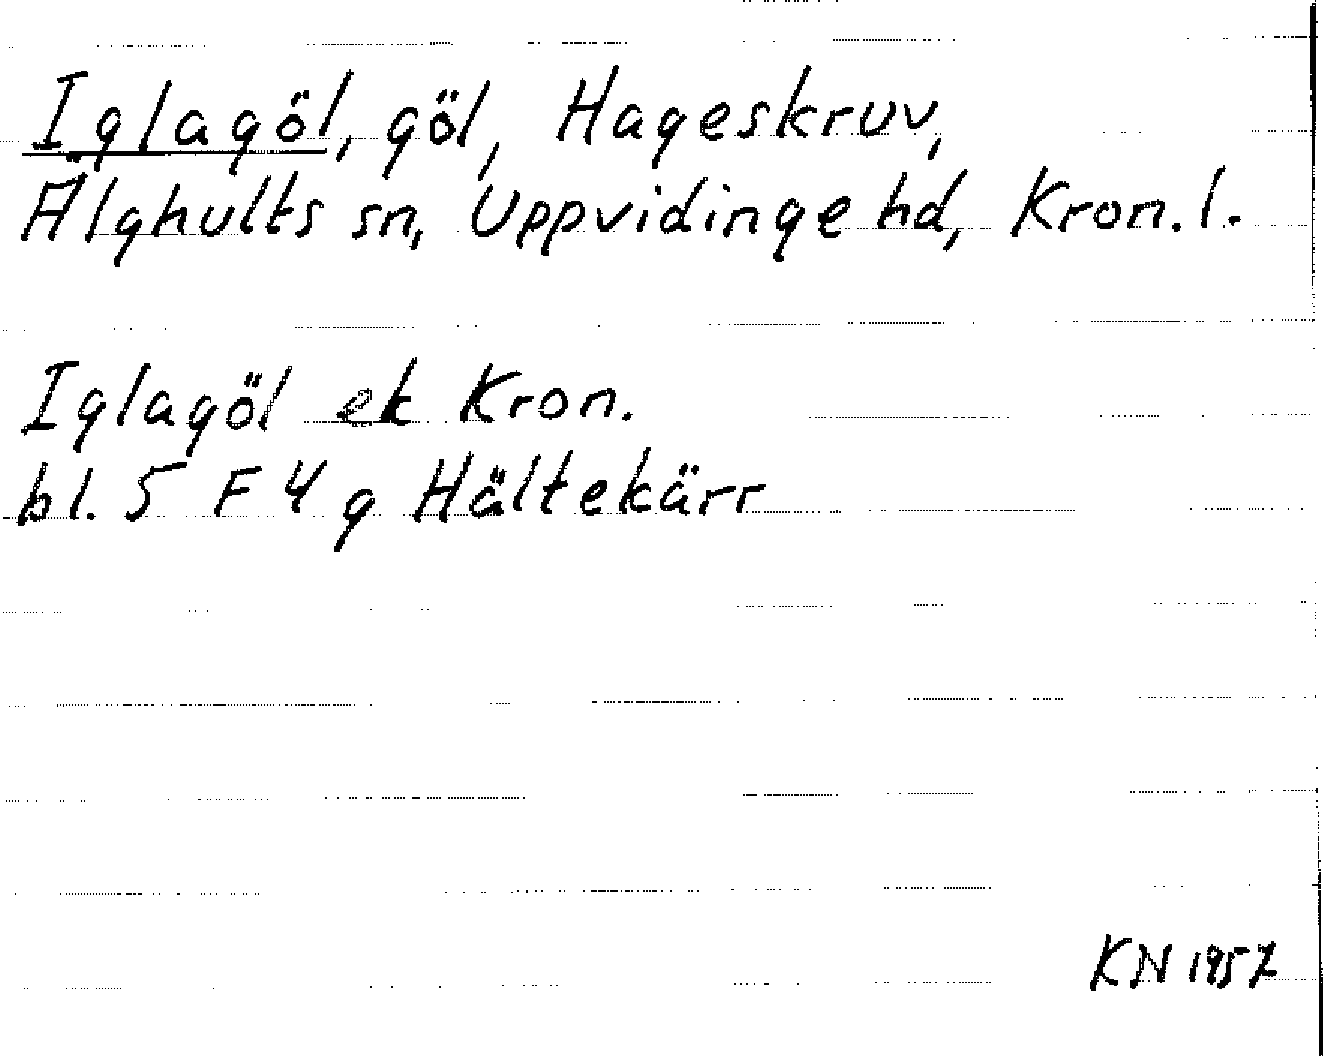 Iglagöl, göl, Hageskruv,
Älghults sn, Uppvidinge hd, Kron. l.
Iglagöl ek Kron.
bl. 5 F 4 g Hältekärr
KN 1957